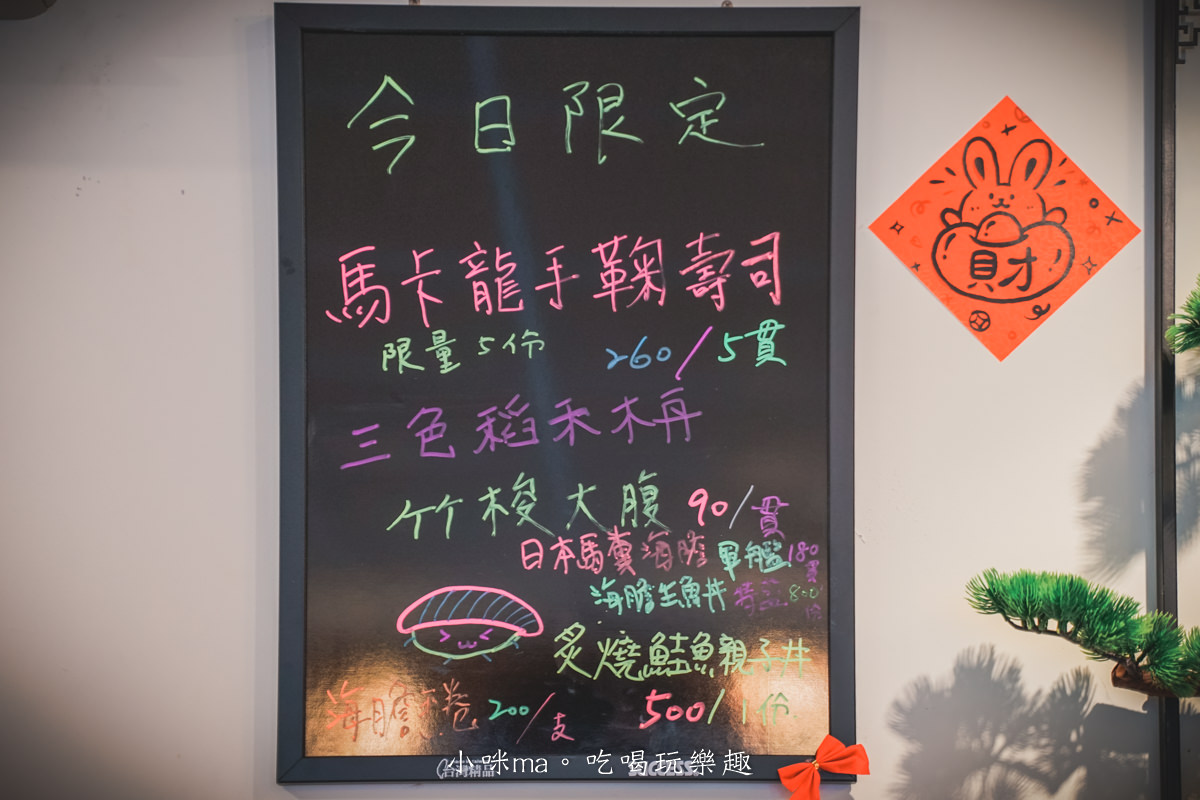 今日限定
馬卡龍手鞠壽司
限量5份 260/5貫
三色稻禾
竹梭大腹 90/貫
日本馬糞海膽軍艦 180貫
海膽生魚丼 特盛 800份
炙燒鮭魚親子丼
500/1份
海膽手卷 200/支
財
台灣精品
SUCCESS
小咪ma。吃喝玩樂趣